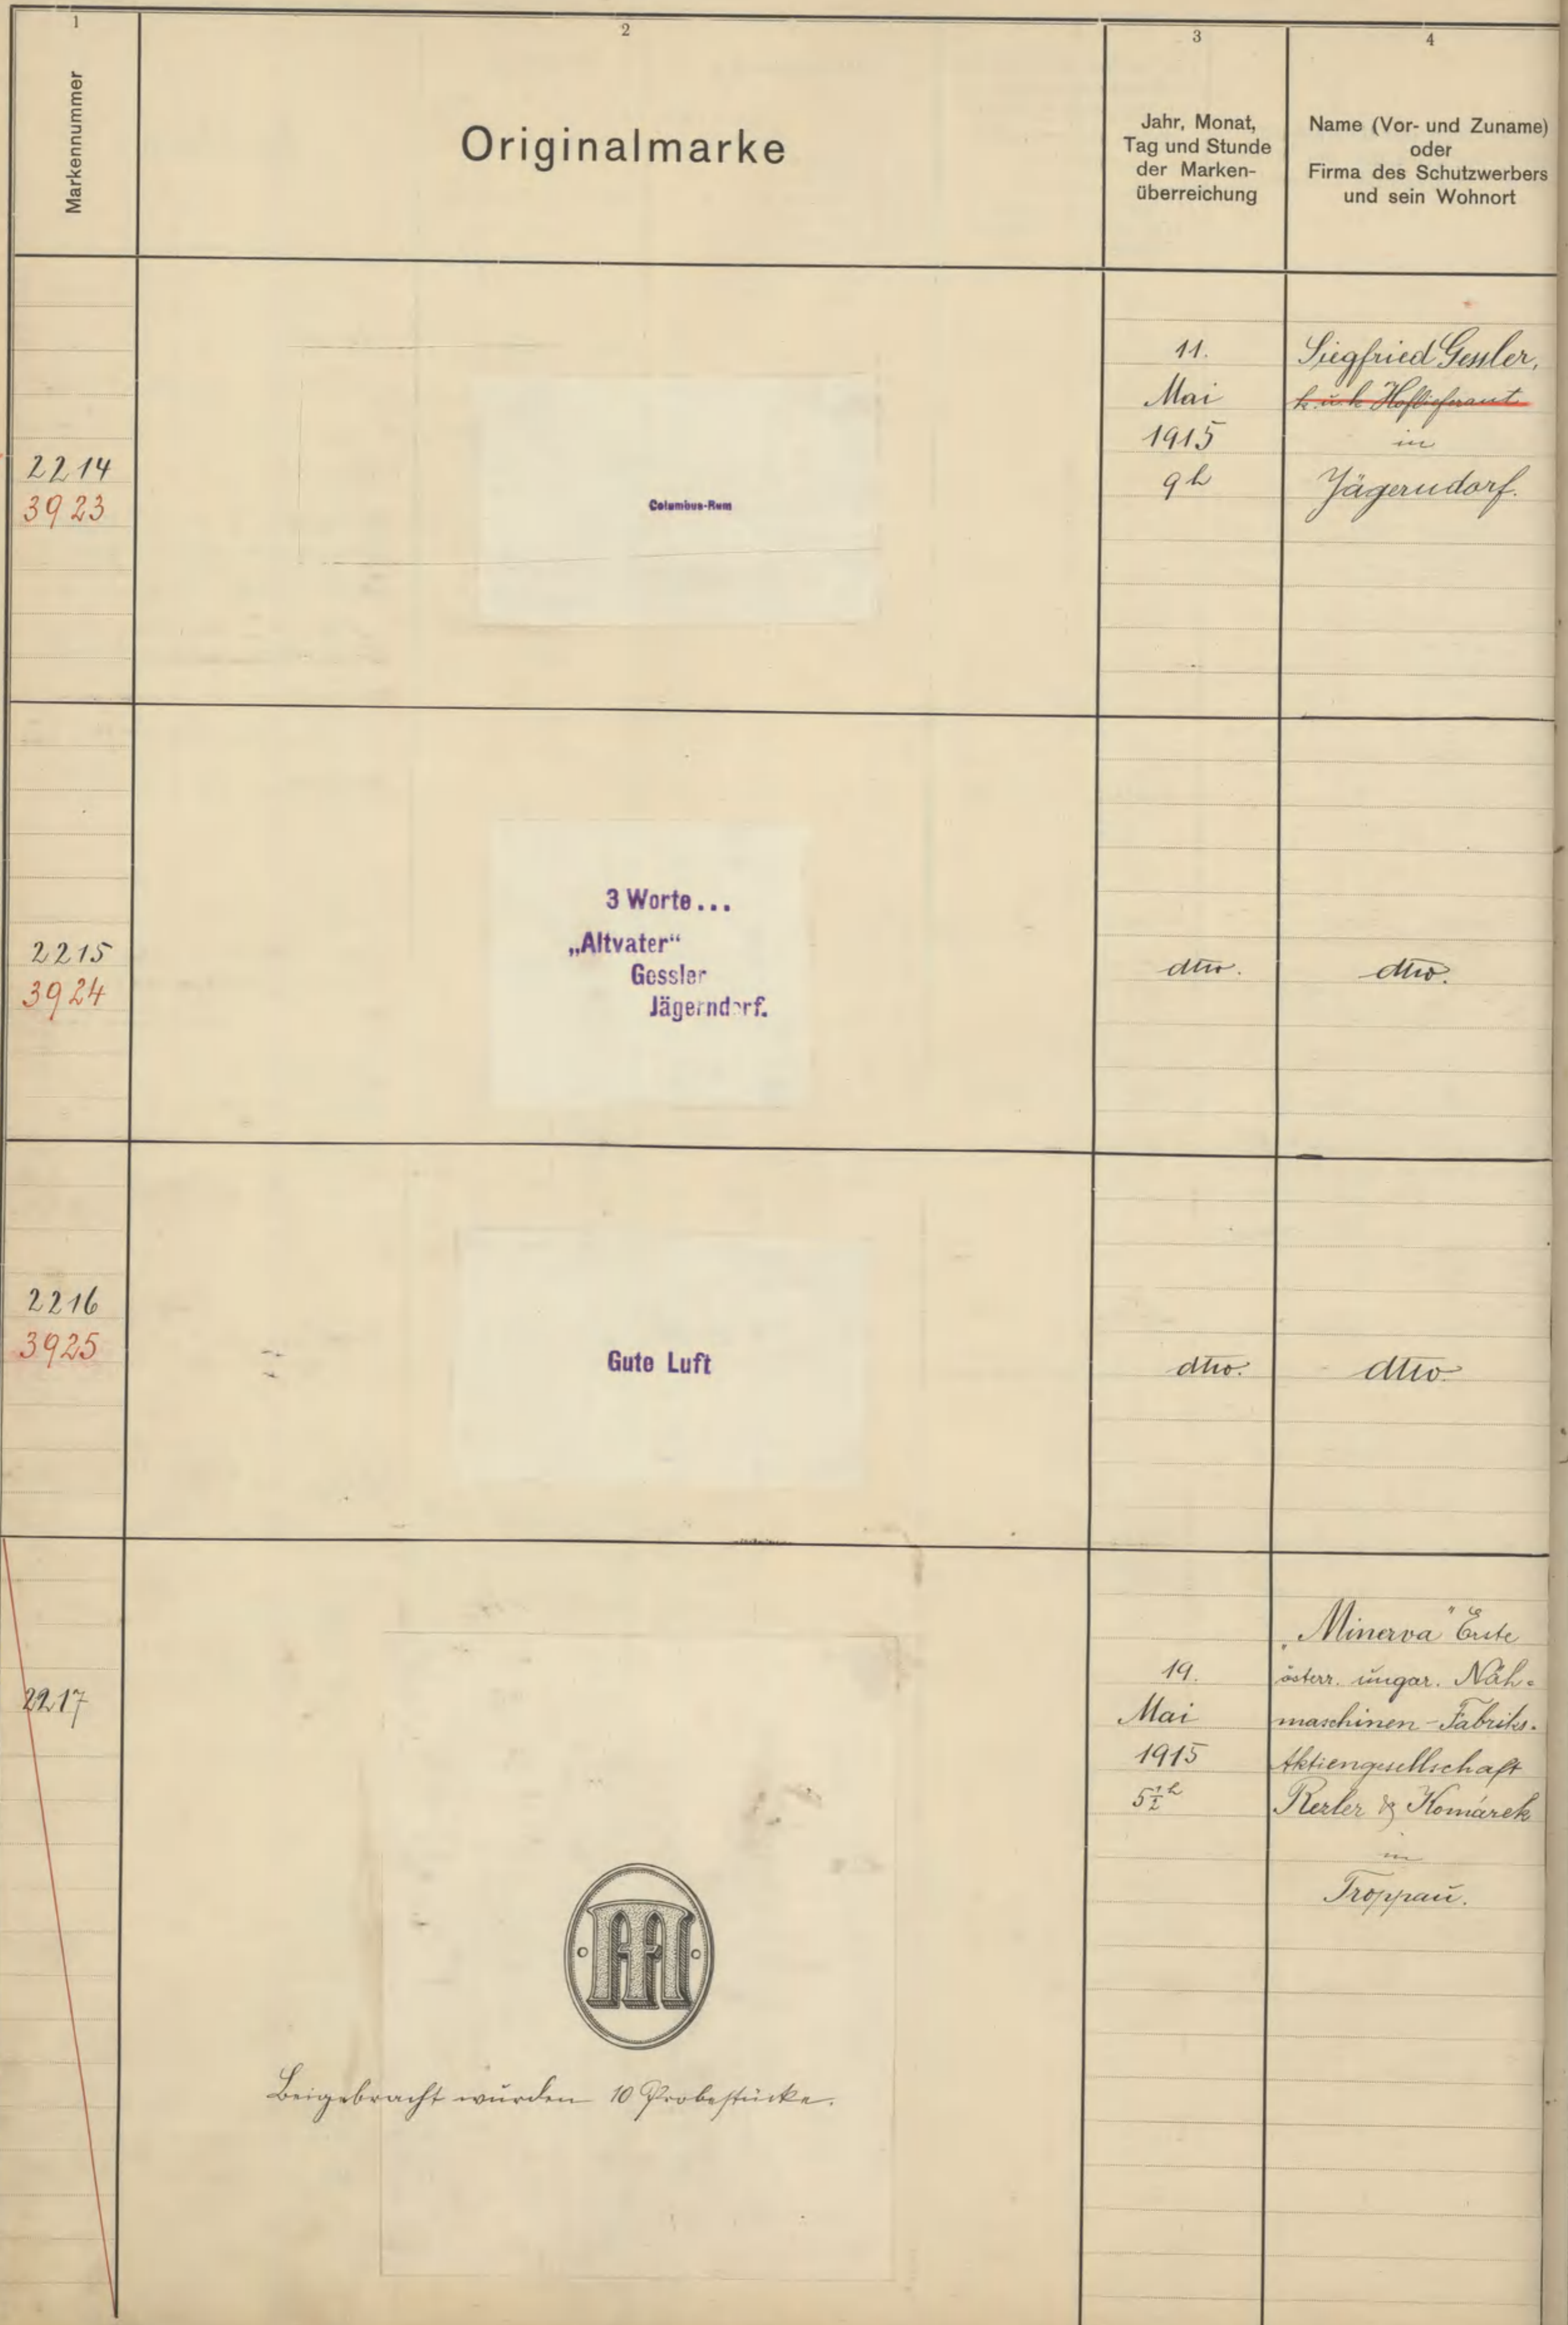 1
2
3
4
Markennummer
Originalmarke
Jahr, Monat,
Tag und Stunde
der Marken-
überreichung
Name (Vor- und Zuname)
oder
Firma des Schutzwerbers
und sein Wohnort
2214
3923
Columbus-Rum
11.
Mai
1915
9h
Siegfried Gessler,
k. u. k Hoflieferant
in
Jägerndorf.
2215
3924
3 Worte...
„Altvater“
Gessler
Jägerndorf.
dtto.
dtto.
2216
3925
Gute Luft
dtto.
dtto.
2217
M
Beigebracht wurden 10 Probestücke.
19.
Mai
1915
5½h
„Minerva" Erste
österr. ungar. Näh-
maschinen-Fabriks-
Aktiengesellschaft
& Komárek
in
Troppau.